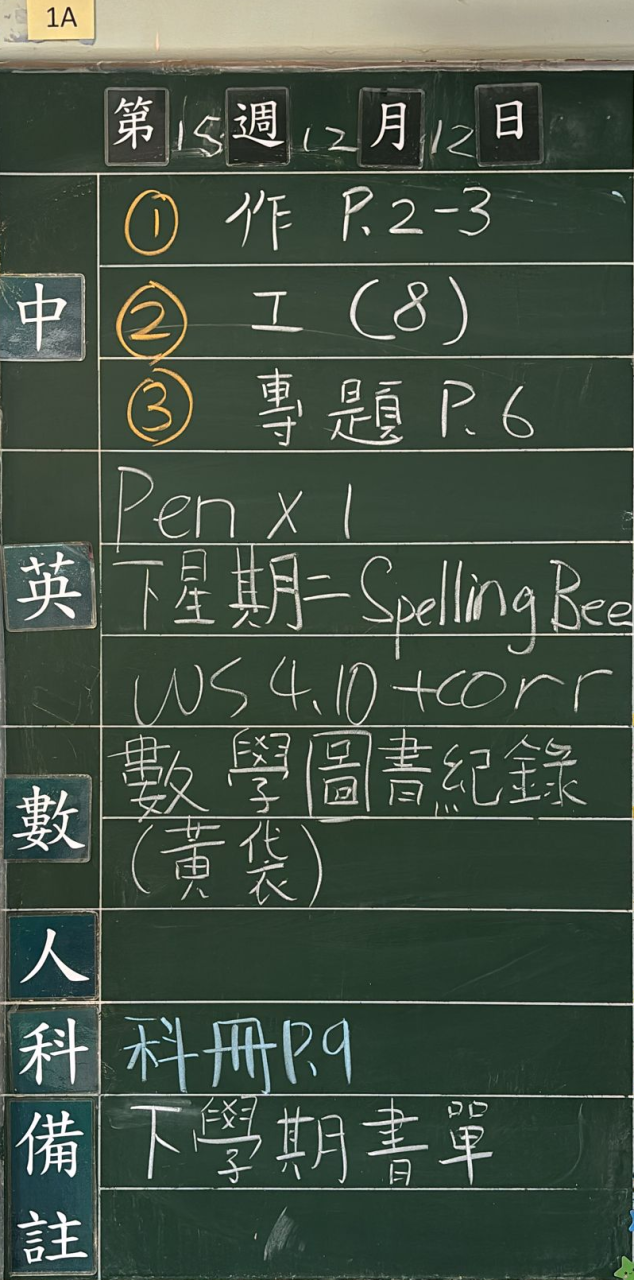 1A
第15週12月12日
中
① 作 P.2-3
② 工 (8)
③ 專題 P.6
英
Pen x 1
下星期二 Spelling Bee
WS 4.10 +corr
數
數學圖書紀錄
(黃袋)
人
科
科冊P.9
備註
下學期書單